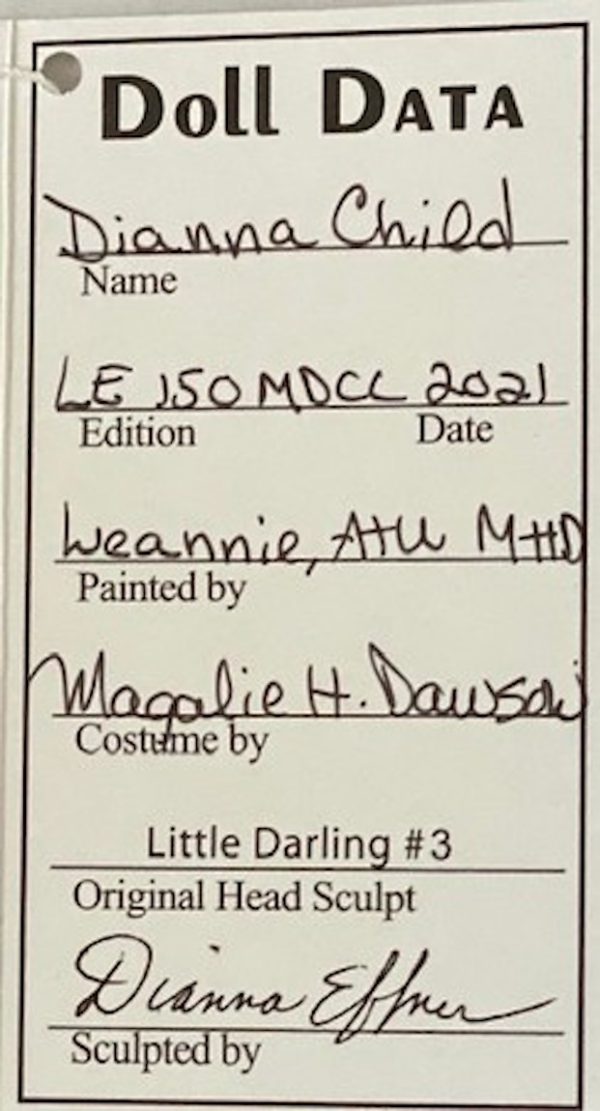 Doll Data
Dianna Child
Name
LE 150 MDCC 2021
Edition Date
Painted by
Magalie H. Dawson
Costume by
Little Darling #3
Original Head Sculpt
Dianna Effner
Sculpted by